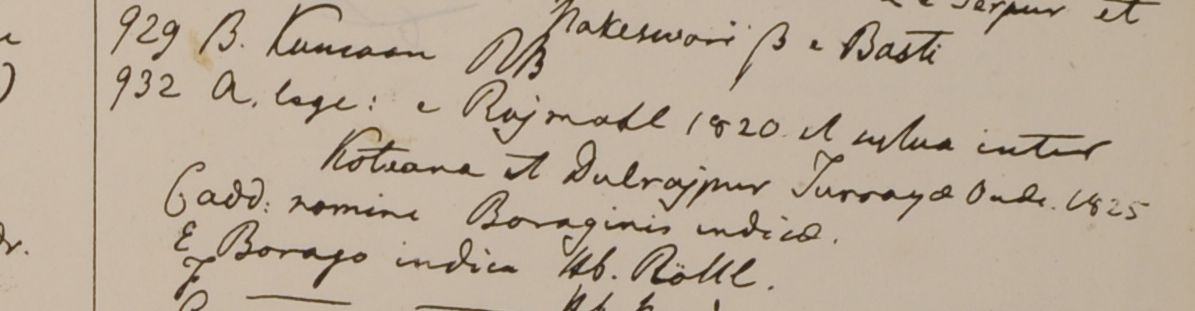 et
929 B. Kumaon RB Nakeswari β e Basti
932 A. lege: e Rajmahl 1820. et sylva inter
Koteana et Dulrajpur Turrayæ Oude. 1825
C add: nomine Boraginis indicæ.
E Borago indica Hb. Röttl.
F
Hb.